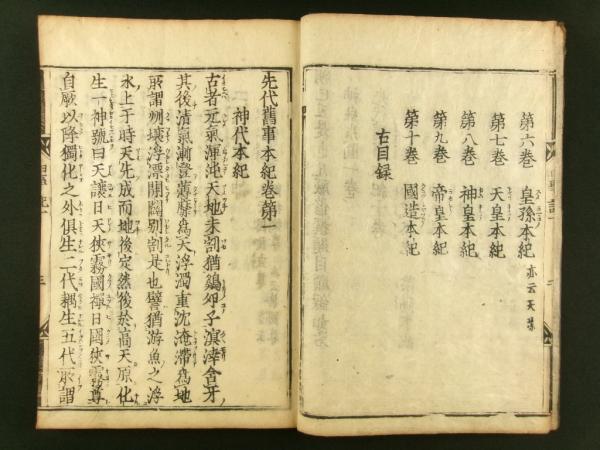 第六巻 皇孫本紀 亦云天孫
第七巻 天皇本紀
第八巻 神皇本紀
第九巻 帝皇本紀
第十巻 國造本紀
右目録
先代舊事本紀巻第一
神代本紀
古者元氣渾沌天地未割猶鷄卵子溟涬含牙
其後清氣漸登薄靡爲天浮濁重沈淹滯爲地
所謂州壌浮漂開闢別割是也譬猶游魚之浮
水上于時天先成而地後定然後於高天原化
生一神號曰天譲日天狹霧國禪日國狹霧尊
自厥以降獨化之外俱生二代耦生五代所謂